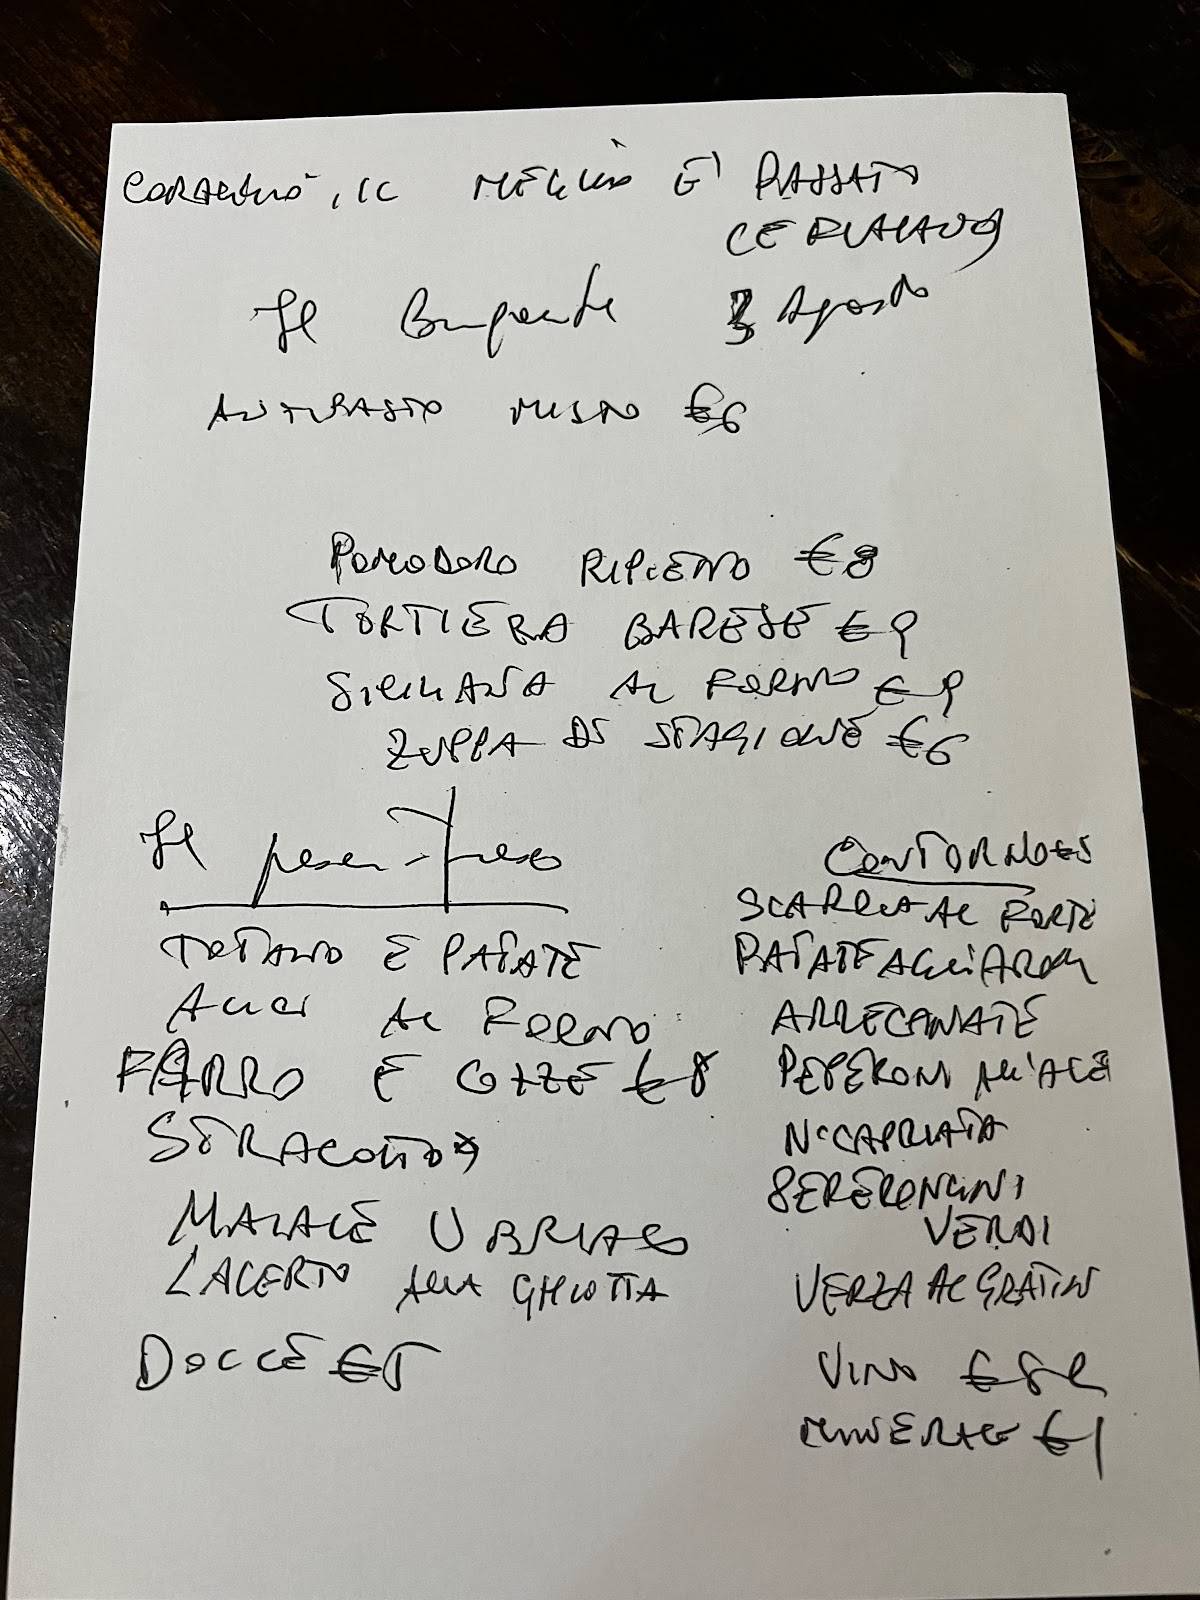 CORAGGIO, IL MEGLIO E' PASSATO
3 Agosto
ANTIPASTO MISTO €6
POMODORO RIPIENO €8
TORTIERA BARESE €9
SICILIANA AL FORNO €9
ZUPPA DI STAGIONE €6
TOTANO E PATATE
ALICI AL FORNO
FARRO E COZZE €8
STRACOTTO
MAIALE UBRIACO
LACERTO ALLA GHIOTTA
DOLCE €5
CONTORNO €5
AL FORTE
PATATE
ARRECANATE
PEPERONI ALL'ACETO
N'CAPRIATA
VERDI
VERZA AL GRATIN
VINO €8 L
MINERALE €1